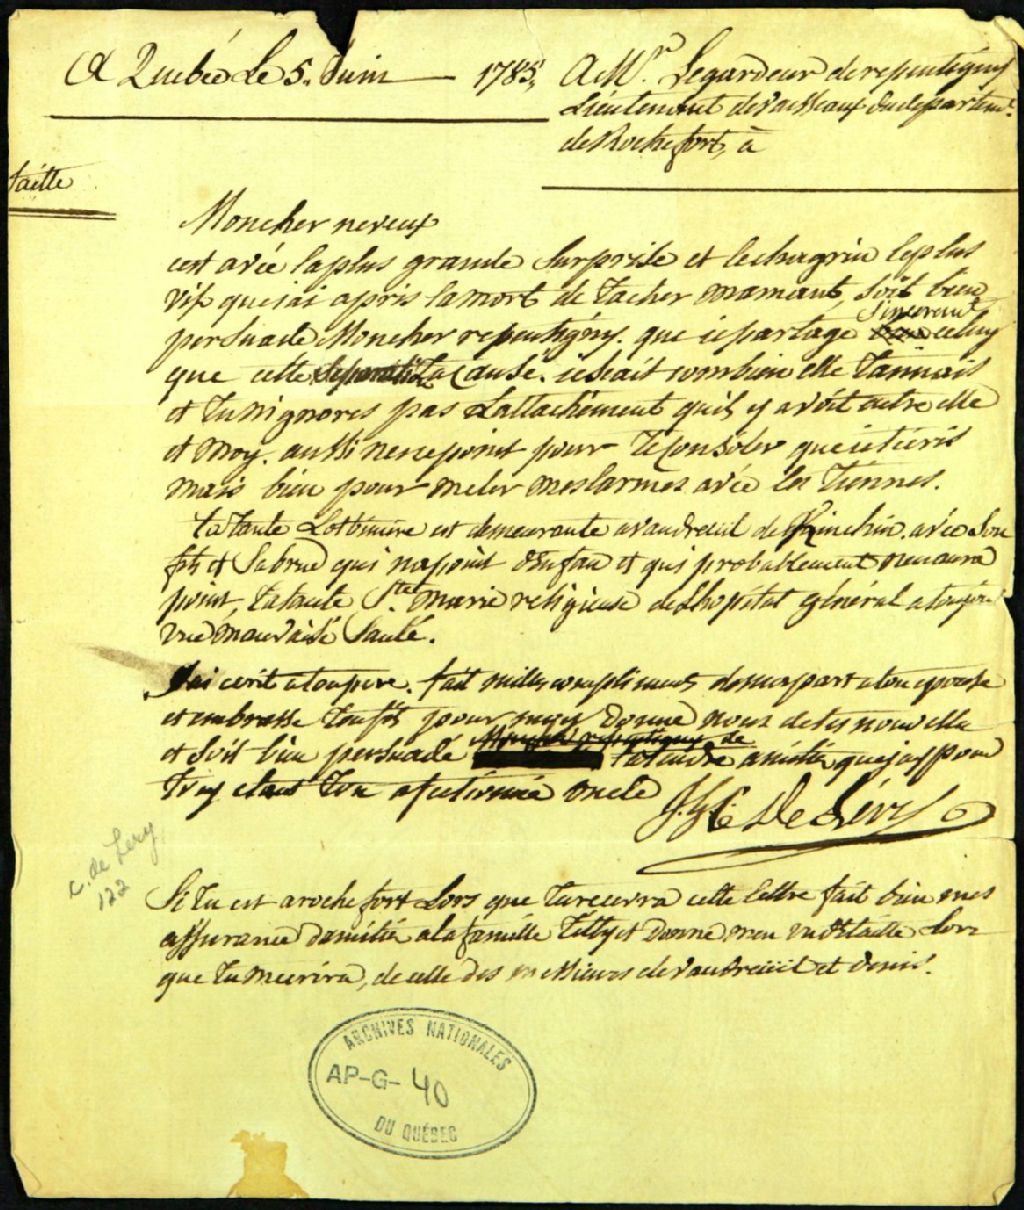 A Quebéc Le 5. Juin 1785,
A Mr. Legardeur de repentigny
Lieutenant de vaisseaux du departemt.
de Rochefort, à
faitte
Moncher neveux
cest avéc laplus grande Surprise et lechagrin leplus
vif que jai apris lamort de ta cher maman, soit bien
persuade Moncher repentigny. que je partage sincerement celuy
que cette Separation ta Causé. je seait combien elle taimais
et tu nignores pas Lattachement quil y avoit entre elle
et moy. aussi nesce point pour te Consoler que je técris
mais bien pour meler meslarmes avéc les tiennes.
ta tante Lotbiniere est demeurante avaudreuil de avéc Son
fils et Sa brue qui napoint denfan et qui probablement nenaura
point, ta tante Ste. marie religieuse de Lhopital général a toujour
une mauvaise Santé.
Jai ecrit atonpere. fait mille compliments demapart aton epouse
et embrasse ton fils pour moy donne nous detes nouvelle
et soit bien persuadé Moncher repentigny de latendre amitié que jay pour
toy etant ton afectionné oncle
J. G. C. De Léry
C. de Lery
122
Si tu est arochefort Lors que turecevra cette lettre fait bien mes
assurance damitié ala famille Tilly et donne men un détaille Lors
que tu mecrira, de celle des messieurs devaudreuil et
ARCHIVES NATIONALES
AP-G-40
DU QUÉBEC